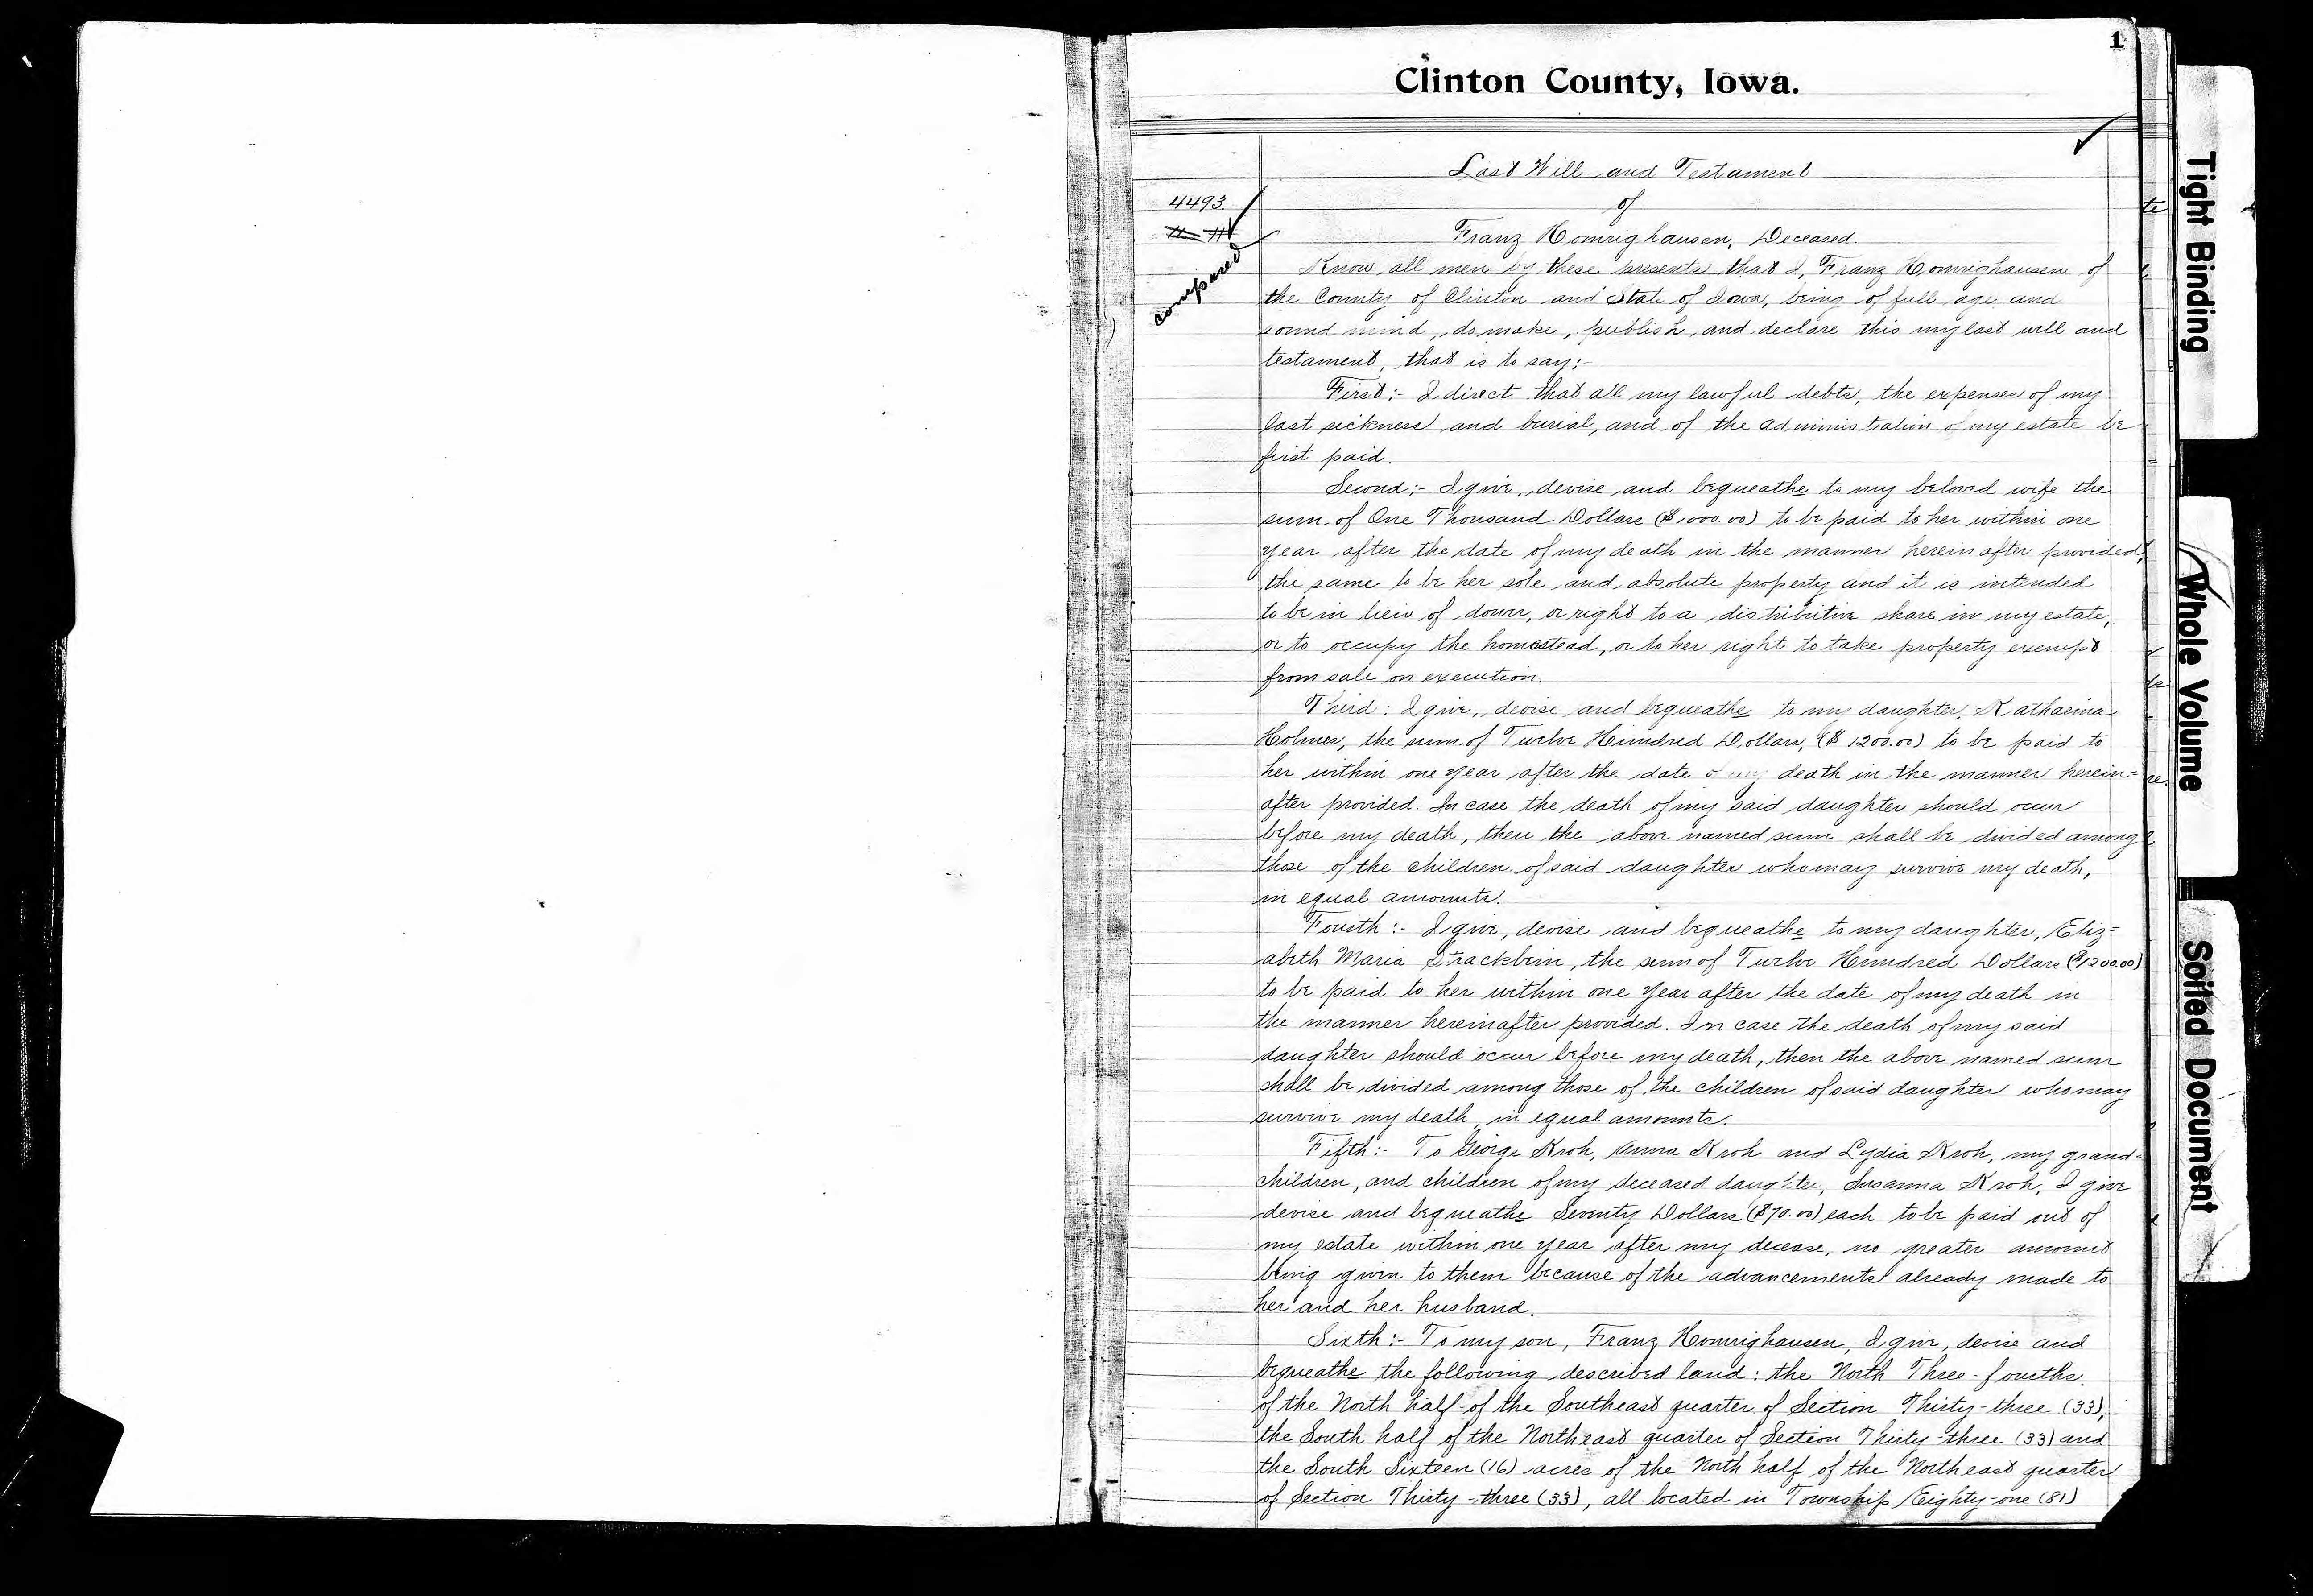 1
Clinton County, Iowa.
Last Will and Testament
4493.
of
Franz Homrighausen, Deceased.
compared
Know all men by these presents that I, Franz Homrighausen of
the County of Clinton and State of Iowa, being of full age and
sound mind, do make, publish and declare this my last will and
testament, that is to say:-
First:- I direct that all my lawful debts, the expenses of my
last sickness and burial, and of the administration of my estate be
first paid.
Second:- I give, devise and bequeathe to my beloved wife the
sum of One Thousand Dollars ($1000.00) to be paid to her within one
year after the date of my death in the manner herein after provided,
the same to be her sole and absolute property and it is intended
to be in lieu of dower, or right to a distributive share in my estate,
or to occupy the homestead, or to her right to take property exempt
from sale on execution.
Third: I give, devise and bequeathe to my daughter, Katharina
Holmer, the sum of Twelve Hundred Dollars, ($1200.00) to be paid to
her within one year after the date of my death in the manner herein=
after provided. In case the death of my said daughter should occur
before my death, then the above named sum shall be divided among
those of the children of said daughter who may survive my death,
in equal amounts.
Fourth:- I give, devise and bequeathe to my daughter, Eliz=
abeth Maria Strackbein, the sum of Twelve Hundred Dollars ($1200.00)
to be paid to her within one year after the date of my death in
the manner hereinafter provided. In case the death of my said
daughter should occur before my death, then the above named sum
shall be divided among those of the children of said daughter who may
survive my death, in equal amounts.
Fifth:- To George Kroh, Anna Kroh and Lydia Kroh, my grand=
children, and children of my deceased daughter, Susanna Kroh, I give
devise and bequeathe Seventy Dollars ($70.00) each to be paid out of
my estate within one year after my decease, no greater amount
being given to them because of the advancements already made to
her and her husband.
Sixth:- To my son, Franz Homrighausen, I give, devise and
bequeathe the following described land: the North Three-fourths
of the North half of the Southeast quarter of Section Thirty-three (33),
the South half of the Northeast quarter of Section Thirty-three (33) and
the South Sixteen (16) acres of the North half of the Northeast quarter
of Section Thirty-three (33), all located in Township Eighty-one (81)
Tight Binding
Whole Volume
Soiled Document